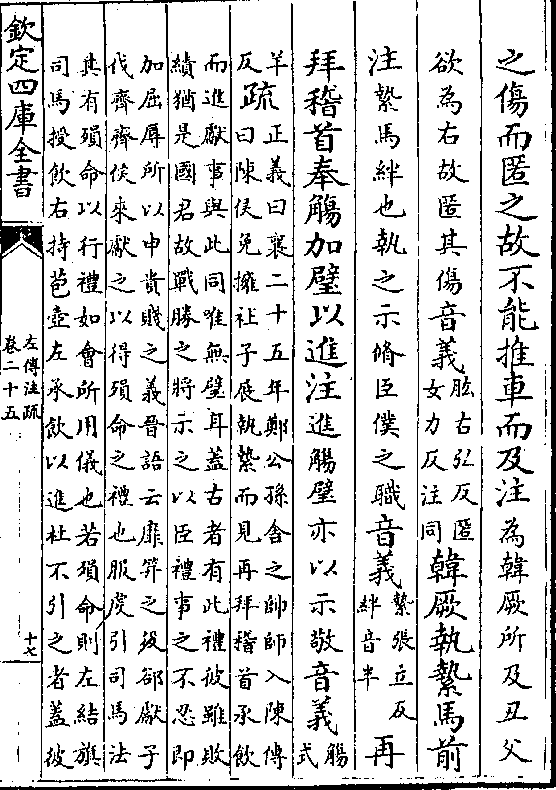 之傷而匿之故不能推車而及注為韓厥所及丑父
欲為右故匿其傷音義肱右弘反匿
女力反注同韓厥執縶馬前
注縶馬絆也執之示脩臣僕之職音義縶張立反
絆音半再
拜稽首奉觴加璧以進注進觴璧亦以示敬音義觴
式
羊
反疏正義曰襄二十五年鄭公孫舍之帥師入陳傳
曰陳侯免擁社子展執縶而見再拜稽首承飲
而進獻事與此同唯無璧耳蓋古者有此禮彼雖敗
績猶是國君故戰勝之將示之以臣禮事之不忍即
加屈辱所以申貴賤之義晉語云靡筓之役郤獻子
伐齊齊侯來獻之以得殞命之禮也服虔引司馬法
其有殞命以行禮如會所用儀也若殞命則左結旗
司馬授飲右持苞壺左承飲以進杜不引之者蓋彼
欽定四庫全書
左傳注疏
卷二十五
十七